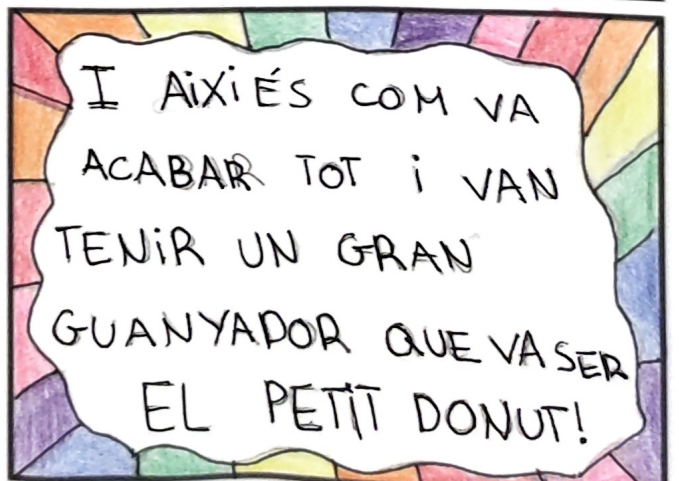 I AiXi ÉS COM VA
ACABAR TOT i VAN
TENiR UN GRAN
GUANYADOR QUE VA SER
EL PETIT DONUT!